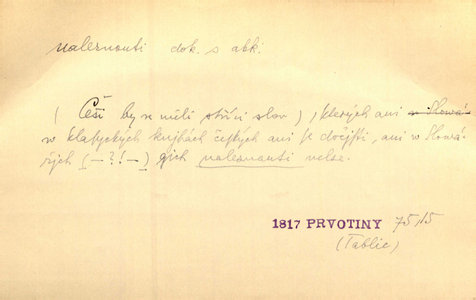 nalesnouti dok. s abk.
( Češi by se měli stříci slov), kterých ani w Slowá-
w klasyckých knjhách českých ani se dočjsti, ani w Slowá-
řjch (—?!—) gich nalesnauti nelze.
1817 PRVOTINY 75/15
(Tablic)